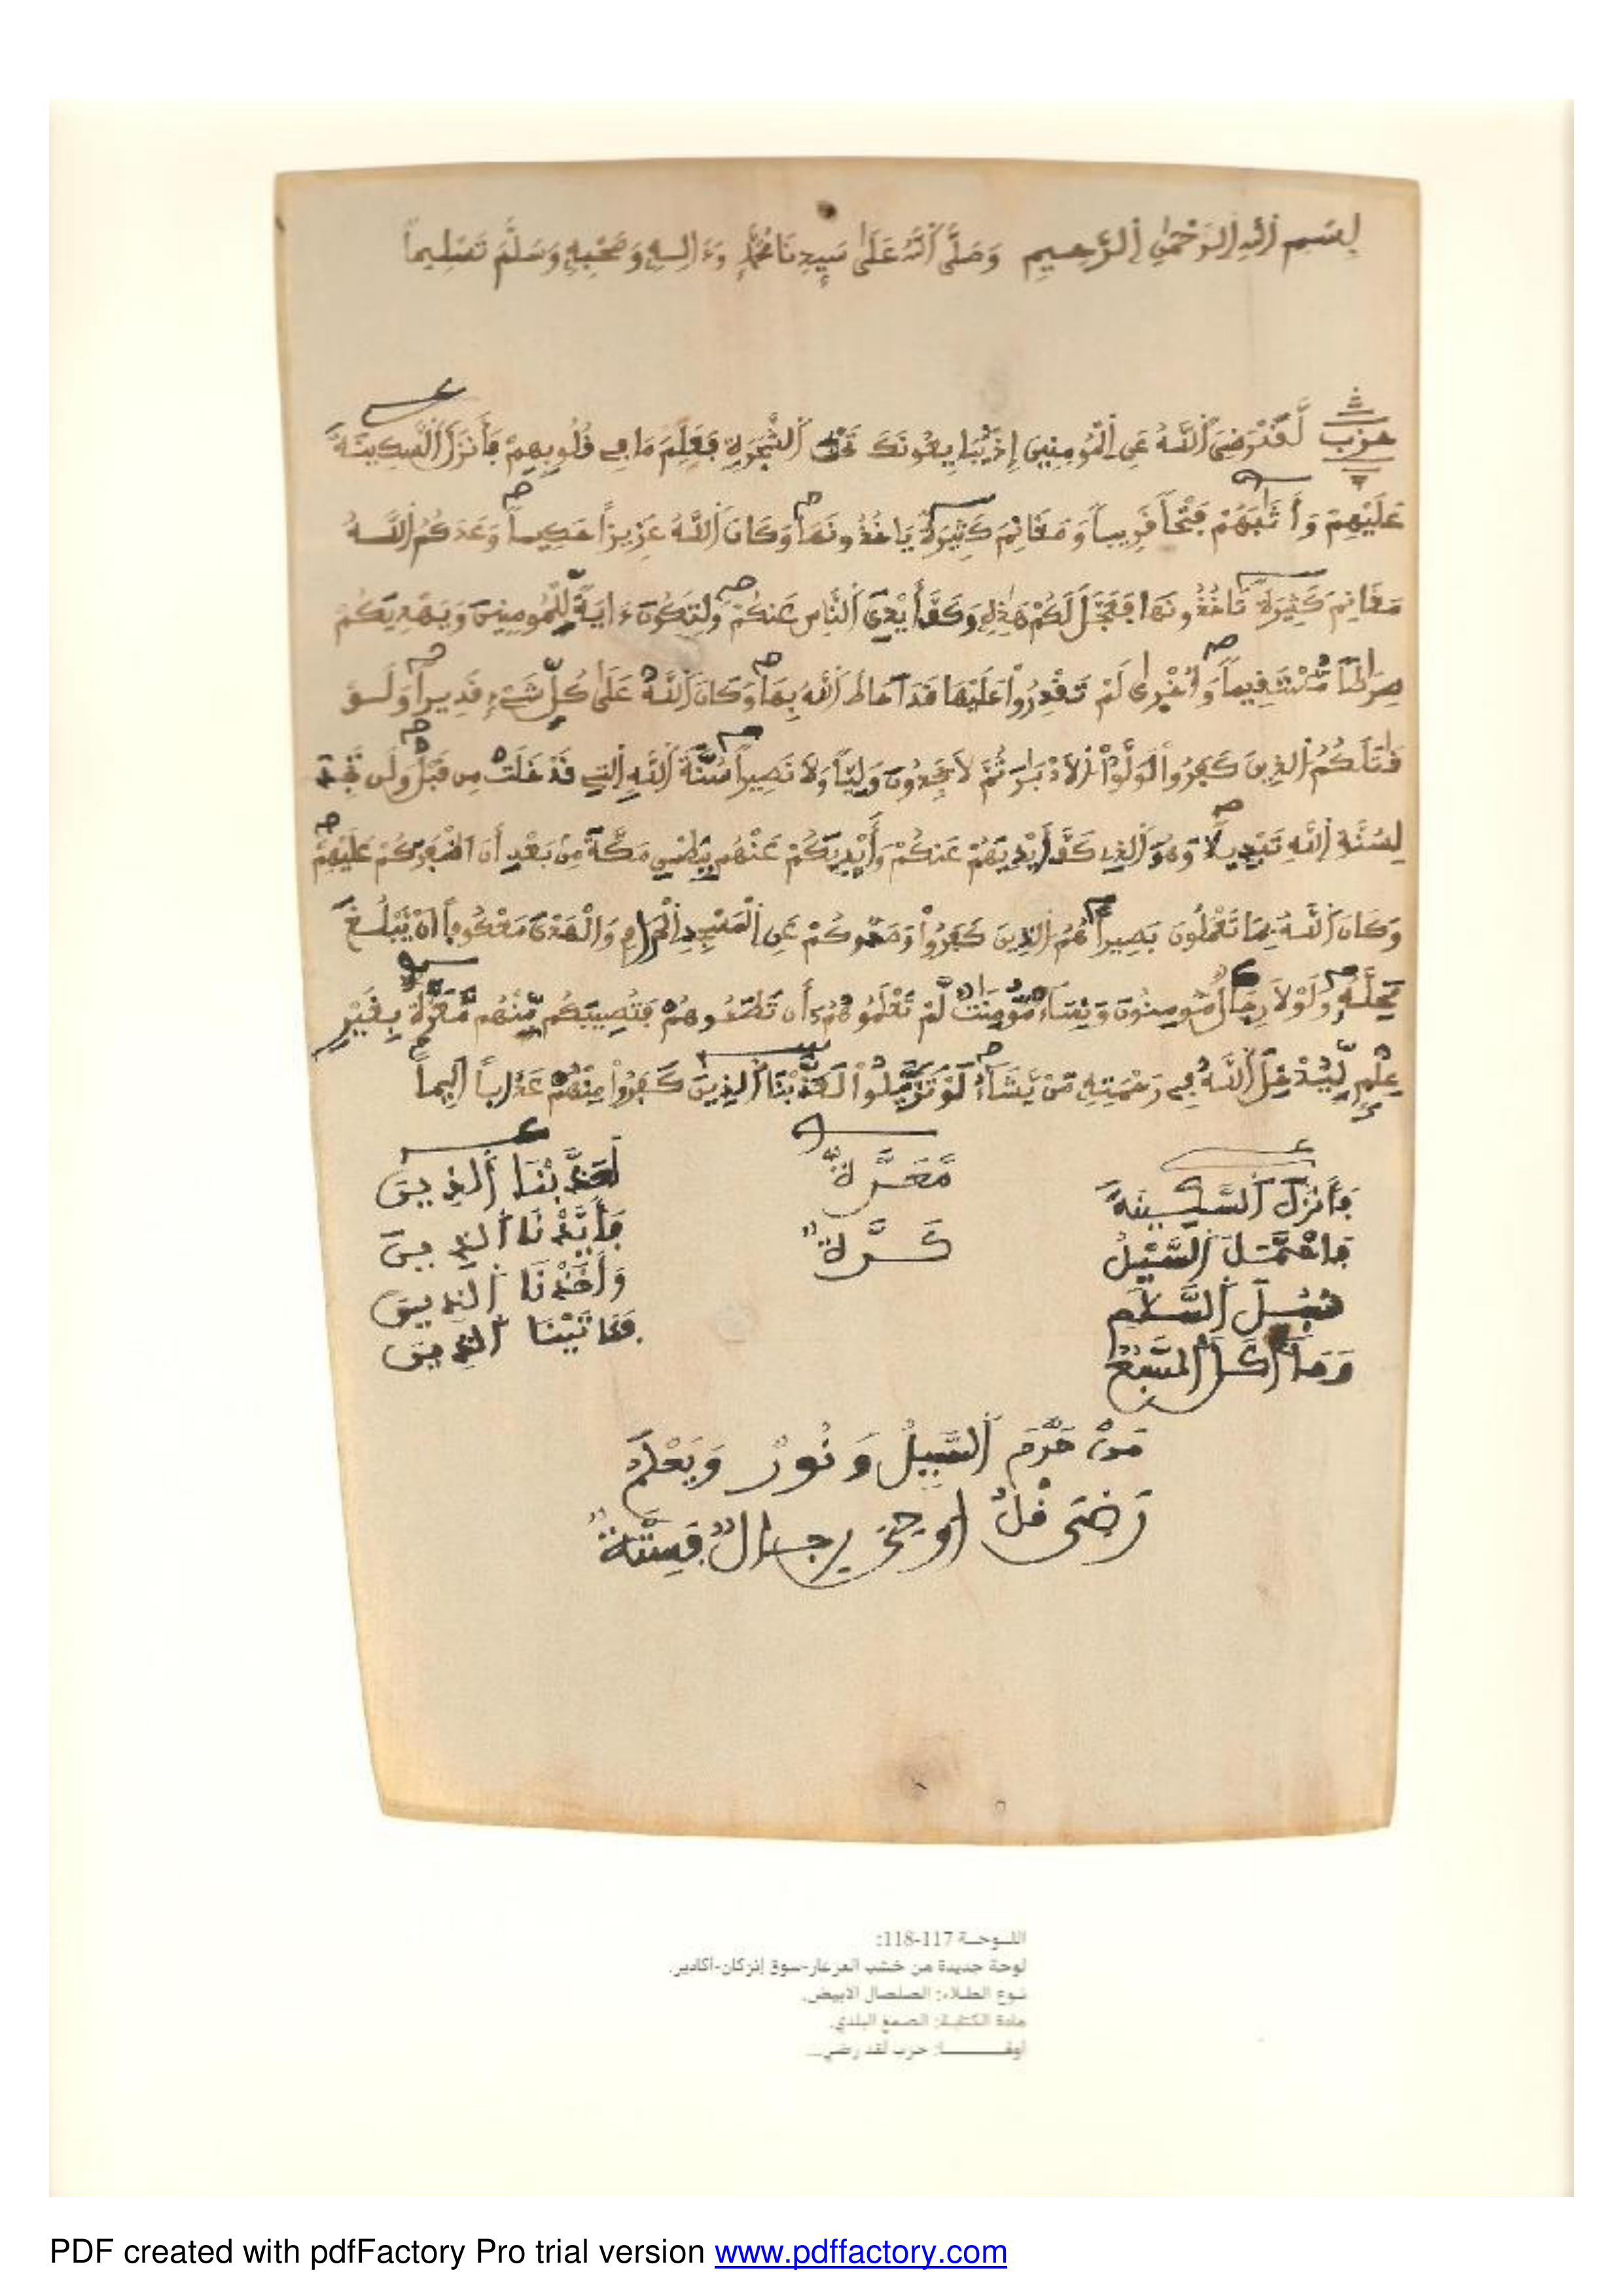 بِسْمِ اِ۬للَّهِ اِ۬لرَّحْمَٰنِ اِ۬لرَّحِيمِ وَصَلَّى اَ۬للَّهُ عَلَىٰ سَيِّدِنَا مُحَمَّدٍ وَءَالِهِ وَصَحْبِهِ وَسَلَّمَ تَسْلِيماً
حزب لَّقَدْ رَضِيَ اَ۬للَّهُ عَنِ اِ۬لْمُومِنِينَ إِذْ يُبَايِعُونَكَ تَحْتَ اَ۬لشَّجَرَةِ فَعَلِمَ مَا فِے قُلُوبِهِمْ فَأَنزَلَ اَ۬لسَّكِينَةَ
عَلَيْهِمْ وَأَثَٰبَهُمْ فَتْحاً قَرِيباً وَمَغَانِمَ كَثِيرَةً يَاخُذُونَهَا وَكَانَ اَ۬للَّهُ عَزِيزاً حَكِيماً وَعَدَكُمُ اُ۬للَّهُ
مَغَانِمَ كَثِيرَةً تَاخُذُونَهَا فَعَجَّلَ لَكُمْ هَٰذِهِ وَكَفَّ أَيْدِيَ اَ۬لنَّاسِ عَنكُمْ وَلِتَكُونَ ءَايَةً لِّلْمُومِنِينَ وَيَهْدِيَكُمْ
صِرَٰطاً مُّسْتَقِيماً وَأُخْرَىٰ لَمْ تَقْدِرُواْ عَلَيْهَا قَدَ اَحَاطَ اَ۬للَّهُ بِهَا وَكَانَ اَ۬للَّهُ عَلَىٰ كُلِّ شَےْءٍ قَدِيراً وَلَوْ
قَٰتَلَكُمُ اُ۬لذِينَ كَفَرُواْ لَوَلَّوُاْ اُ۬لَادْبَٰرَ ثُمَّ لَا يَجِدُونَ وَلِيّاً وَلَا نَصِيراً سُنَّةَ اَ۬للَّهِ اِ۬لتِے قَدْ خَلَتْ مِن قَبْلُ وَلَن تَجِدَ
لِسُنَّةِ اِ۬للَّهِ تَبْدِيلًا وَهُوَ اَ۬لذِے كَفَّ أَيْدِيَهُمْ عَنكُمْ وَأَيْدِيَكُمْ عَنْهُم بِبَطْنِ مَكَّةَ مِنۢ بَعْدِ أَنَ اَظْفَرَكُمْ عَلَيْهِمْ
وَكَانَ اَ۬للَّهُ بِمَا تَعْمَلُونَ بَصِيراً هُمُ اُ۬لذِينَ كَفَرُواْ وَصَدُّوكُمْ عَنِ اِ۬لْمَسْجِدِ اِ۬لْحَرَامِ وَالْهَدْيَ مَعْكُوفاً اَنْ يَّبْلُغَ
مَحِلَّهُ وَلَوْلَا رِجَالٌ مُّومِنُونَ وَنِسَآءٌ مُّومِنَٰتٌ لَّمْ تَعْلَمُوهُمُ أَن تَطَـُٔوهُمْ فَتُصِيبَكُم مِّنْهُم مَّعَرَّةٌ بِغَيْرِ
عِلْمٍ لِّيُدْخِلَ اَ۬للَّهُ فِے رَحْمَتِهِ مَنْ يَّشَآءُ لَوْ تَزَيَّلُواْ لَعَذَّبْنَا اَ۬لذِينَ كَفَرُواْ مِنْهُمْ عَذَاباً اَلِيماً
فَأَنزَلَ اَ۬لسَّكِينَةَ مَّعَرَّةٌ لَعَذَّبْنَا اَ۬لذِينَ
فَاحْتَمَلَ اَ۬لسَّيْلُ كَرَّةٌ فَأَيَّدْنَا اَ۬لذِينَ
سُبُلَ اَ۬لسَّلَٰمِ وَأَخَذْنَا اَ۬لذِينَ
وَمَا أَكَلَ اَ۬لسَّبُعُ فَـَٔاتَيْنَا اَ۬لذِينَ
مَنْ حَرَّمَ السَّبِيلُ وَنُورٌ وَيَعْلَمَ
رَضِيَ قُلُ اوحِيَ رجالٌ فِتْنَةٌ
اللوحة 117-118:
لوحة جديدة من خشب العرعار-سوق إنزكان-أكادير.
نوع الطلاء: الصلصال الابيض.
مادة الكتابة: الصمغ البلدي.
حزب لقد رضي...
PDF created with pdfFactory Pro trial version www.pdffactory.com